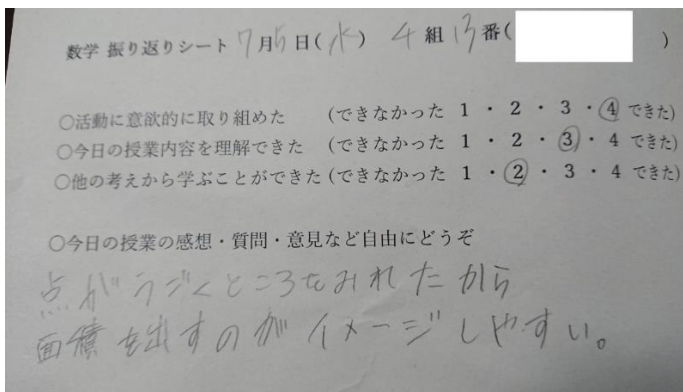 数学 振り返りシート 7月5日(水) 4組13番( )
○活動に意欲的に取り組めた (できなかった 1・2・3・4 できた)
○今日の授業内容を理解できた (できなかった 1・2・3・4 できた)
○他の考えから学ぶことができた(できなかった 1・2・3・4 できた)
○今日の授業の感想・質問・意見など自由にどうぞ
点がうごくところをみれたから
面積を出すのがイメージしやすい。